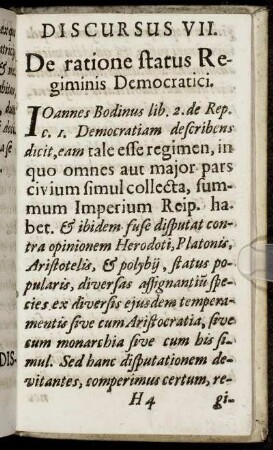 DISCURSUS VII.
De ratione status Re-
giminis Democratici.
IOannes Bodinus lib. 2. de Rep.
c. 1. Democratiam describens
dicit, eam tale esse regimen, in
quo omnes aut major pars
civium simul collecta, sum-
mum Imperium Reip. ha-
bet. & ibidem fuse disputat con-
tra opinionem Herodoti, Platonis,
Aristotelis, & polybij, status po-
pularis, diversas assignantiũ spe-
cies ex diversis ejusdem tempera-
mentis sive cum Aristocratia, sive
cum monarchia sive cum his si-
mul. Sed hanc disputationem de-
vitantes, comperimus certum, re-
H 4 gi-
DIS-